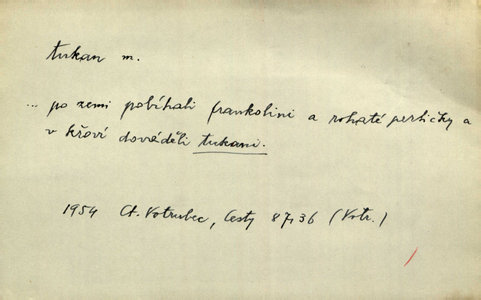 tukan m.
... po zemi pobíhali frankolini a rohaté perličky a
v křoví dováděli tukani.
1954 Ct. Votrubec, Cesty 87,36 (Votr.)